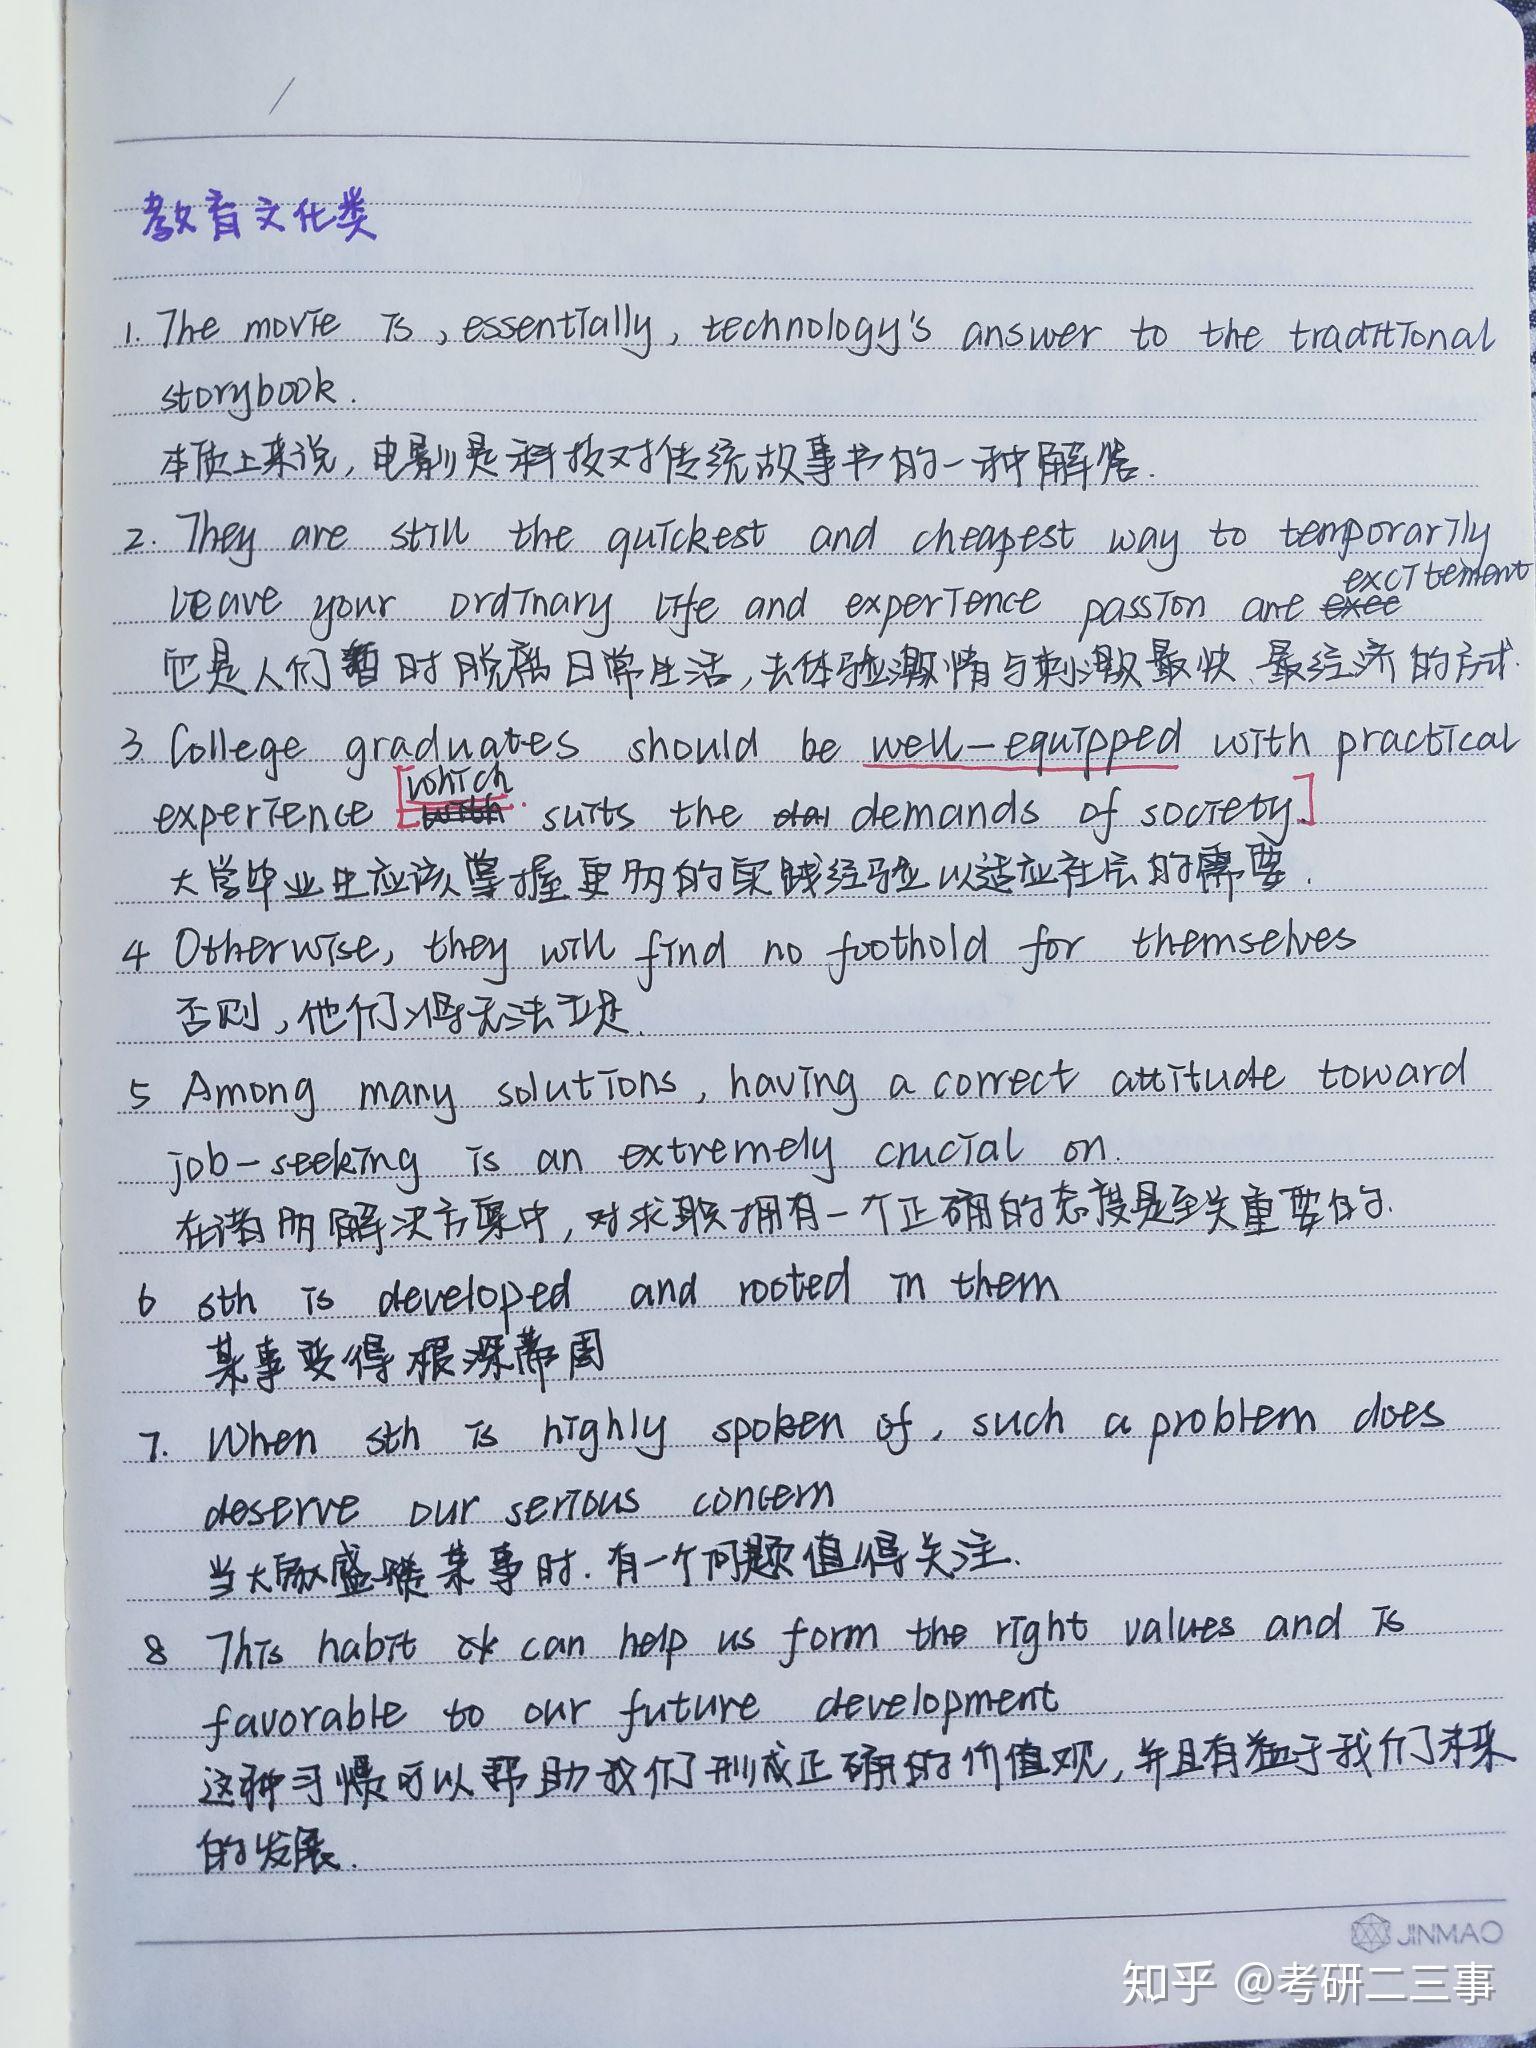 教育文化类
1. The movie is, essentially, technology's answer to the traditional
storybook.
本质上来说，电影是科技对传统故事书的一种解答.
2. They are still the quickest and cheapest way to temporarily
leave your ordinary life and experience passion and excitement
它是人们暂时脱离日常生活，去体验激情与刺激最快、最经济的方式.
3. College graduates should be well-equipped with practical
experience [which suits the demands of society.]
大学毕业生应该掌握更多的实践经验以适应社会的需要.
4 Otherwise, they will find no foothold for themselves
否则，他们将无法立足.
5 Among many solutions, having a correct attitude toward
job-seeking is an extremely crucial on.
在诸多解决方案中，对求职拥有一个正确的态度是至关重要的.
6 sth is developed and rooted in them
某事变得根深蒂固
7. When sth is highly spoken of, such a problem does
deserve our serious concern
当大家盛赞某事时.有一个问题值得关注.
8 This habit can help us form the right values and is
favorable to our future development
这种习惯可以帮助我们形成正确的价值观，并且有益于我们未来
的发展.
JINMAO
知乎 @考研二三事